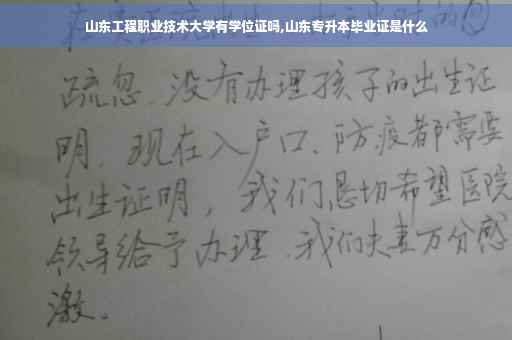 山东工程职业技术大学有学位证吗,山东专升本毕业证是什么
疏忽.没有办理孩子的出生证
明.现在入户口、防疫都需要
出生证明，我们恳切希望医院
领导给予办理.我们夫妻万分感
激。